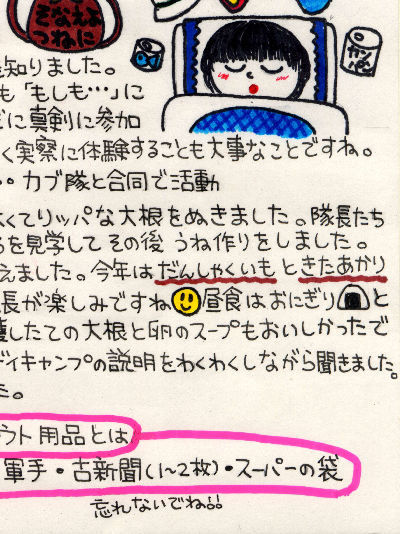 そなえよ
つねに
カンパン
知りました。
も「もしも…」に
に真剣に参加
く実察に体験することも大事なことですね。
・・カブ隊と合同で活動
くてリッパな大根をぬきました。隊長たち
を見学してその後 うね作りをしました。
えました。今年はだんしゃくいもときたあかり
長が楽しみですね 昼食はおにぎり と
したての大根と卵のスープもおいしかったで
デイキャンプの説明をわくわくしながら聞きました。
た。
ウト用品とは
軍手・古新聞(1~2枚)・スーパーの袋
忘れないでね!!